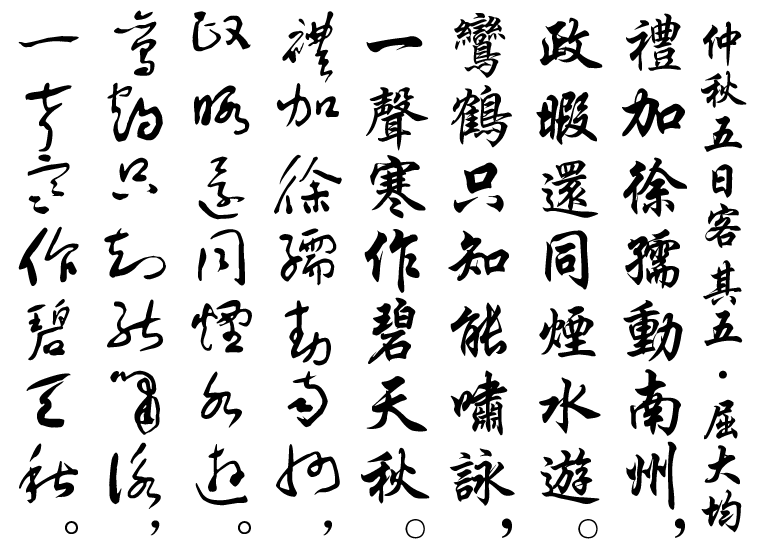 仲秋五日客其五・屈大均
禮加徐孺動南州，
政暇還同煙水遊。
鸞鶴只知能嘯詠，
一聲寒作碧天秋。
禮加徐孺動南州，
政暇還同煙水遊。
鸞鶴只知能嘯詠，
一聲寒作碧天秋。